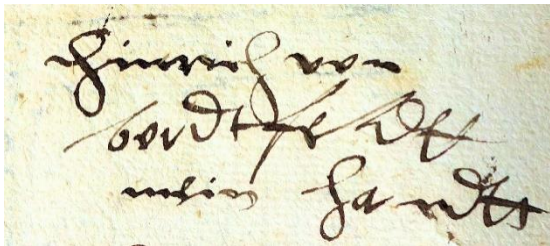 Hinrich von
bordtfeldtt
mein handtt